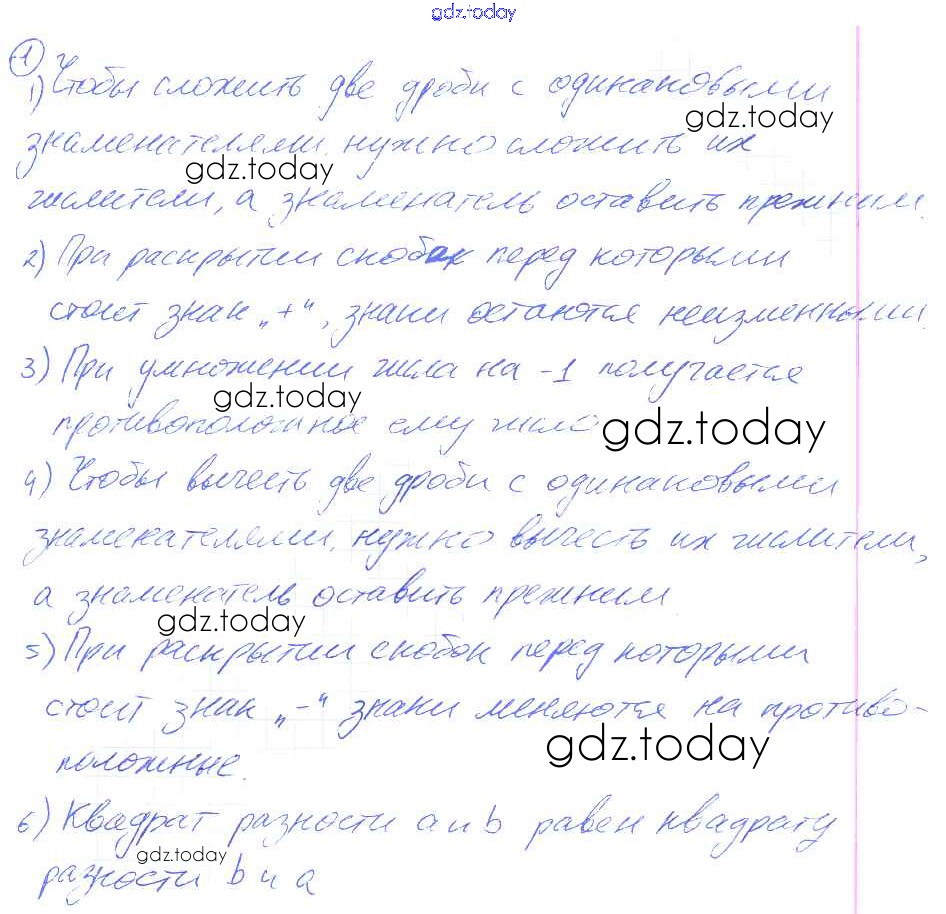 gdz.today
1
1) Чтобы сложить две дроби с одинаковыми
gdz.today
знаменателями, нужно сложить их
gdz.today
числители, а знаменатель оставить прежним.
2) При раскрытии скобок перед которыми
стоит знак „+“, знаки остаются неизменными.
3) При умножении числа на -1 получается
gdz.today
противоположное ему число
gdz.today
4) Чтобы вычесть две дроби с одинаковыми
знаменателями, нужно вычесть их числители,
а знаменатель оставить прежним
gdz.today
5) При раскрытии скобок перед которыми
стоит знак „-“ знаки меняются на противо-
gdz.today
положные.
6) Квадрат разности a и b равен квадрату
gdz.today
разности b и a